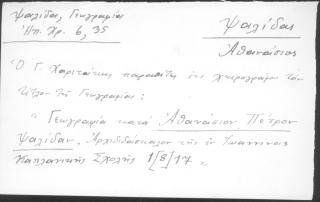 Ψαλίδας, Γεωγραφία
Ἠπ. Χρ. 6, 35
Ψαλίδας
Ἀθανάσιος
Ὁ Γ. Χαριτάκης παραθέτει ἐκ χειρογράφου τὸν
τίτλον τῆς Γεωγραφίας:
"Γεωγραφία κατὰ Ἀθανάσιον Πέτρου
Ψαλίδαν, Ἀρχιδιδάσκαλον τῆς ἐν Ἰωαννίνοις
Καπλανικῆς Σχολῆς 1[8]17"